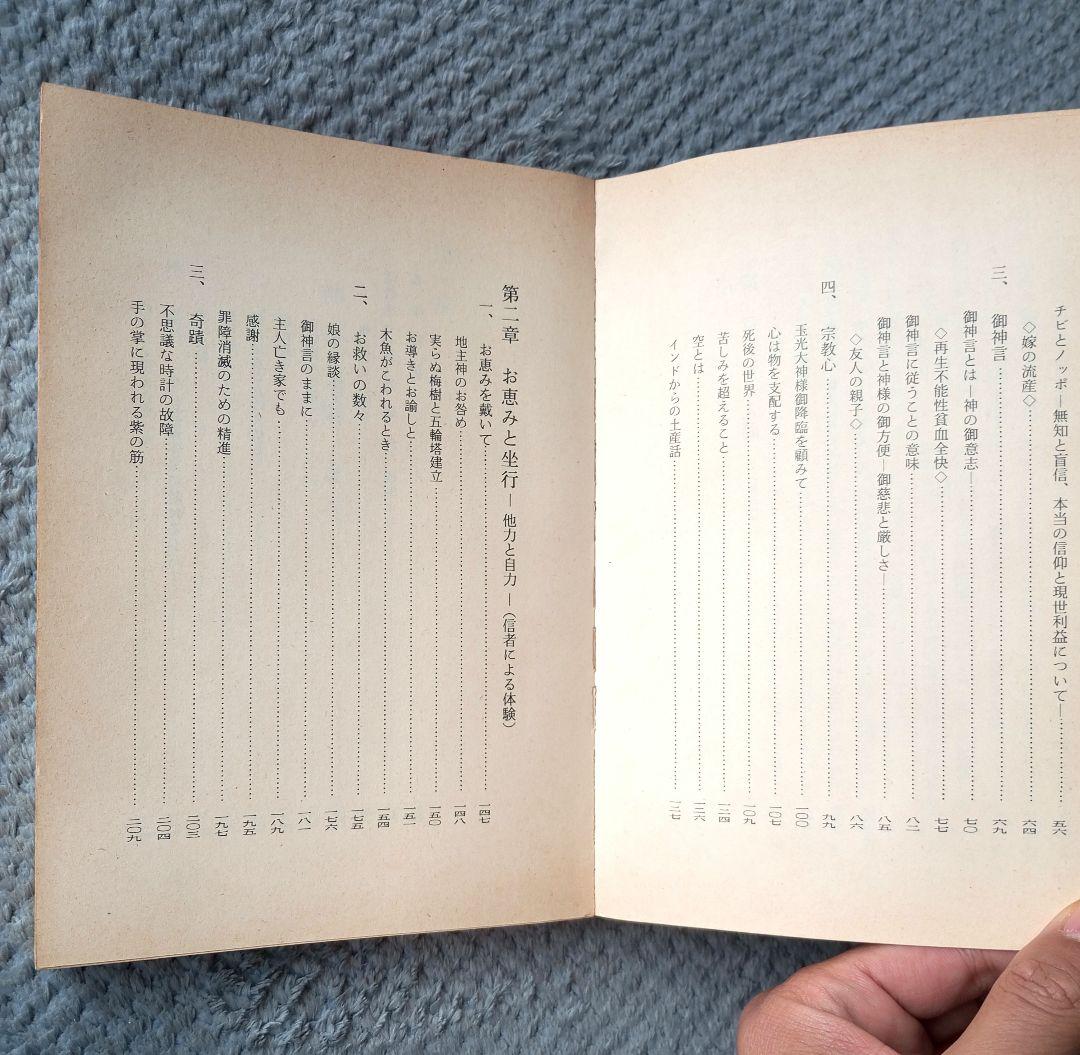 チビとノッポ―無知と盲信、本当の信仰と現世利益について―……五六
◇嫁の流産◇……六四
三、御神言……六九
御神言とは―神の御意志―……七〇
◇再生不能性貧血全快◇……七七
御神言に従うことの意味……八二
御神言と神様の御方便―御慈悲と厳しさ―……八五
◇友人の親子◇……八六
四、宗教心……九九
玉光大神様御降臨を顧みて……一〇〇
心は物を支配する……一〇七
死後の世界……一〇九
苦しみを超えること……一二四
空とは……一二六
インドからの土産話……一三七
第二章　お恵みと坐行―他力と自力―(信者による体験)
一、お恵みを戴いて……一四七
地主神のお咎め……一四八
実らぬ梅樹と五輪塔建立……一五〇
お導きとお諭しと……一五一
木魚がこわれるとき……一五四
二、お救いの数々……一七五
娘の縁談……一七六
御神言のままに……一八一
主人亡き家でも……一八九
感謝……一九五
罪障消滅のための精進……一九七
三、奇蹟……二〇三
不思議な時計の故障……二〇四
手の掌に現われる紫の筋……二〇九